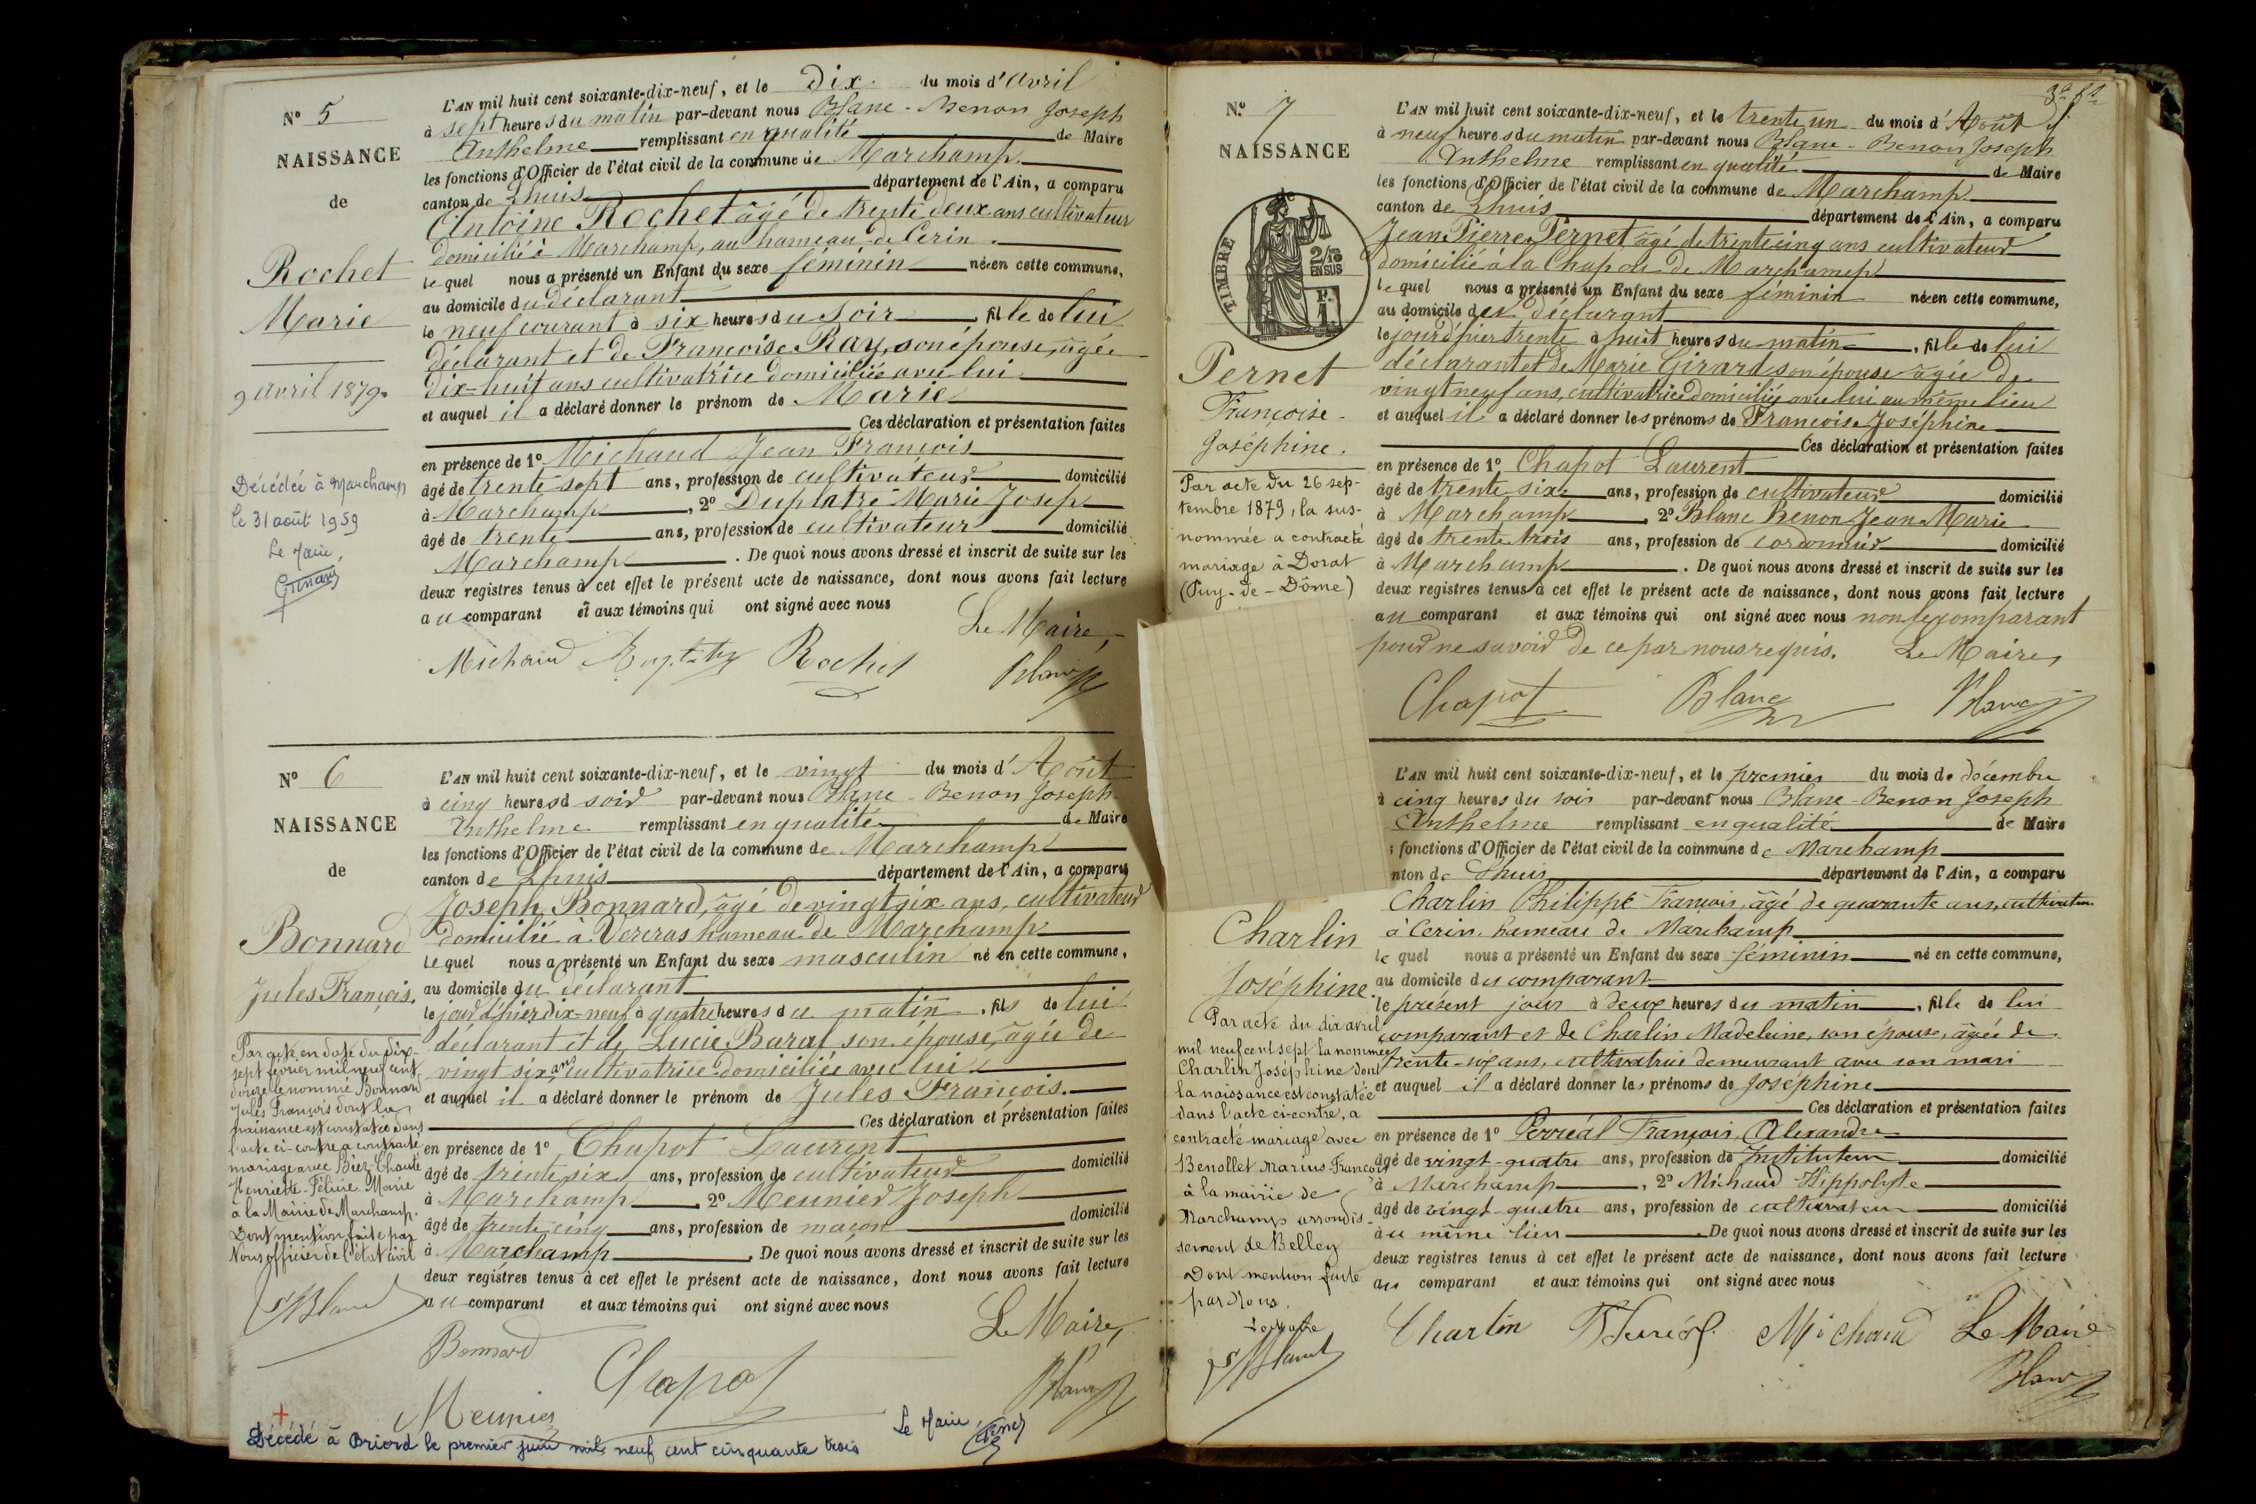 N° 5
NAISSANCE
de
Rochet
Marie
9 avril 1879.
Décédée à Marchamp
le 31 août 1959
Le Maire,
L'AN mil huit cent soixante-dix-neuf, et le Dix du mois d'avril
à sept heures du matin par-devant nous Blanc-Benon Joseph
Anthelme remplissant en qualité de Maire
les fonctions d'Officier de l'état civil de la commune de Marchamp
canton de Lhuis département de l'Ain, a comparu
Antoine Rochet âgé de trente deux ans cultivateur
domicilié à Marchamp, au hameau de Cerin.
le quel nous a présenté un Enfant du sexe féminin née en cette commune,
au domicile du déclarant
le neuf courant à six heures du soir, fille de lui
déclarant et de Françoise Ray, son épouse, âgée
dix-huit ans cultivatrice domiciliée avec lui
et auquel il a déclaré donner le prénom de Marie
Ces déclaration et présentation faites
en présence de 1° Michaud Jean François
âgé de trente sept ans, profession de cultivateur domicilié
à Marchamp, 2° Duplatre Marie Josep
âgé de trente ans, profession de cultivateur domicilié
Marchamp. De quoi nous avons dressé et inscrit de suite sur les
deux registres tenus à cet effet le présent acte de naissance, dont nous avons fait lecture
au comparant et aux témoins qui ont signé avec nous
Le Maire,
Michaud Rochet Blanc
N° 6
NAISSANCE
de
Bonnard
Jules François.
Par acte en date du dix-
sept février mil neuf cent
douze le nommé Bonnard
Jules François dont la
naissance est constatée dans
l'acte ci-contre a contracté
mariage avec Biez-Chauté
Henriette-Félicie Marie
à la Mairie de Marchamp.
Dont mention faite par
Nous officier de l'état civil
Blanc
L'AN mil huit cent soixante-dix-neuf, et le vingt du mois d'Août
à cinq heures d soir par-devant nous Blanc-Benon Joseph
Anthelme remplissant en qualité de Maire
les fonctions d'Officier de l'état civil de la commune de Marchamp
canton de Lhuis département de l'Ain, a comparu
Joseph Bonnard, âgé de vingt six ans, cultivateur
domicilié à Vercras hameau de Marchamp
le quel nous a présenté un Enfant du sexe masculin né en cette commune,
au domicile du déclarant
le jour d'hier dix-neuf à quatre heures du matin, fils de lui
déclarant et de Lucie Barat son épouse, âgée de
vingt six ans, cultivatrice domiciliée avec lui
et auquel il a déclaré donner le prénom de Jules François.
Ces déclaration et présentation faites
en présence de 1° Chapot Laurent
âgé de trente six ans, profession de cultivateur domicilié
à Marchamp, 2° Meunier Joseph
âgé de trente cinq ans, profession de maçon domicilié
à Marchamp. De quoi nous avons dressé et inscrit de suite sur les
deux registres tenus à cet effet le présent acte de naissance, dont nous avons fait lecture
au comparant et aux témoins qui ont signé avec nous
Le Maire,
Bonnard Chapot Blanc
Meunier
Le Maire,
Décédé à Briord le premier juin mil neuf cent cinquante trois
N° 7
NAISSANCE
de
TIMBRE
2/10
EN SUS
F.
1.
Pernet
Françoise-
Joséphine.
Par acte du 26 sep-
tembre 1879, la sus-
nommée a contracté
mariage à Dorat
(Puy-de-Dôme)
L'AN mil huit cent soixante-dix-neuf, et le trente un du mois d'Août
à neuf heures du matin par-devant nous Blanc-Benon Joseph
Anthelme remplissant en qualité de Maire
les fonctions d'Officier de l'état civil de la commune de Marchamp
canton de Lhuis département de l'Ain, a comparu
Jean Pierre Pernet âgé de trente cinq ans cultivateur
domicilié à la Chapele de Marchamp
le quel nous a présenté un Enfant du sexe féminin née en cette commune,
au domicile du déclarant
le jour d'hier trente à huit heures du matin, fille de lui
déclarant et de Marie Girard son épouse âgée de
vingt neuf ans, cultivatrice domiciliée avec lui au même lieu
et auquel il a déclaré donner les prénoms de Françoise Joséphine
Ces déclaration et présentation faites
en présence de 1° Chapot Laurent
âgé de trente six ans, profession de cultivateur domicilié
à Marchamp, 2° Blanc Benon Jean Marie
âgé de trente trois ans, profession de cordonnier domicilié
à Marchamp. De quoi nous avons dressé et inscrit de suite sur les
deux registres tenus à cet effet le présent acte de naissance, dont nous avons fait lecture
au comparant et aux témoins qui ont signé avec nous non le comparant
pour ne savoir de ce par nous requis. Le Maire,
Chapot Blanc Blanc
Charlin
Joséphine.
Par acte du dix avril
mil neuf cent sept la nommée
Charlin Joséphine dont
la naissance est constatée
dans l'acte ci-contre, a
contracté mariage avec
Benollet Marius François
à la mairie de
Marchamp arrondis-
sement de Belley
Dont mention faite
par Nous.
Le Maire
Blanc
L'AN mil huit cent soixante-dix-neuf, et le premier du mois de décembre
à cinq heures du soir par-devant nous Blanc-Benon Joseph
Anthelme remplissant en qualité de Maire
s fonctions d'Officier de l'état civil de la commune de Marchamp
nton de Lhuis département de l'Ain, a comparu
Charlin Philippe François, âgé de quarante ans, cultivateur
à Cerin hameau de Marchamp
le quel nous a présenté un Enfant du sexe féminin né en cette commune,
au domicile du comparant
le présent jour à deux heures du matin, fille de lui
comparant et de Charlin Madeleine, son épouse, âgée de
trente-six ans, cultivatrice demeurant avec son mari
et auquel il a déclaré donner les prénoms de Joséphine
Ces déclaration et présentation faites
en présence de 1° Perréal François Alexandre
âgé de vingt-quatre ans, profession de Instituteur domicilié
à Marchamp, 2° Michaud Hippolyte
âgé de vingt-quatre ans, profession de cultivateur domicilié
au même lieu. De quoi nous avons dressé et inscrit de suite sur les
deux registres tenus à cet effet le présent acte de naissance, dont nous avons fait lecture
au comparant et aux témoins qui ont signé avec nous
Charlin Michaud Le Maire
Blanc